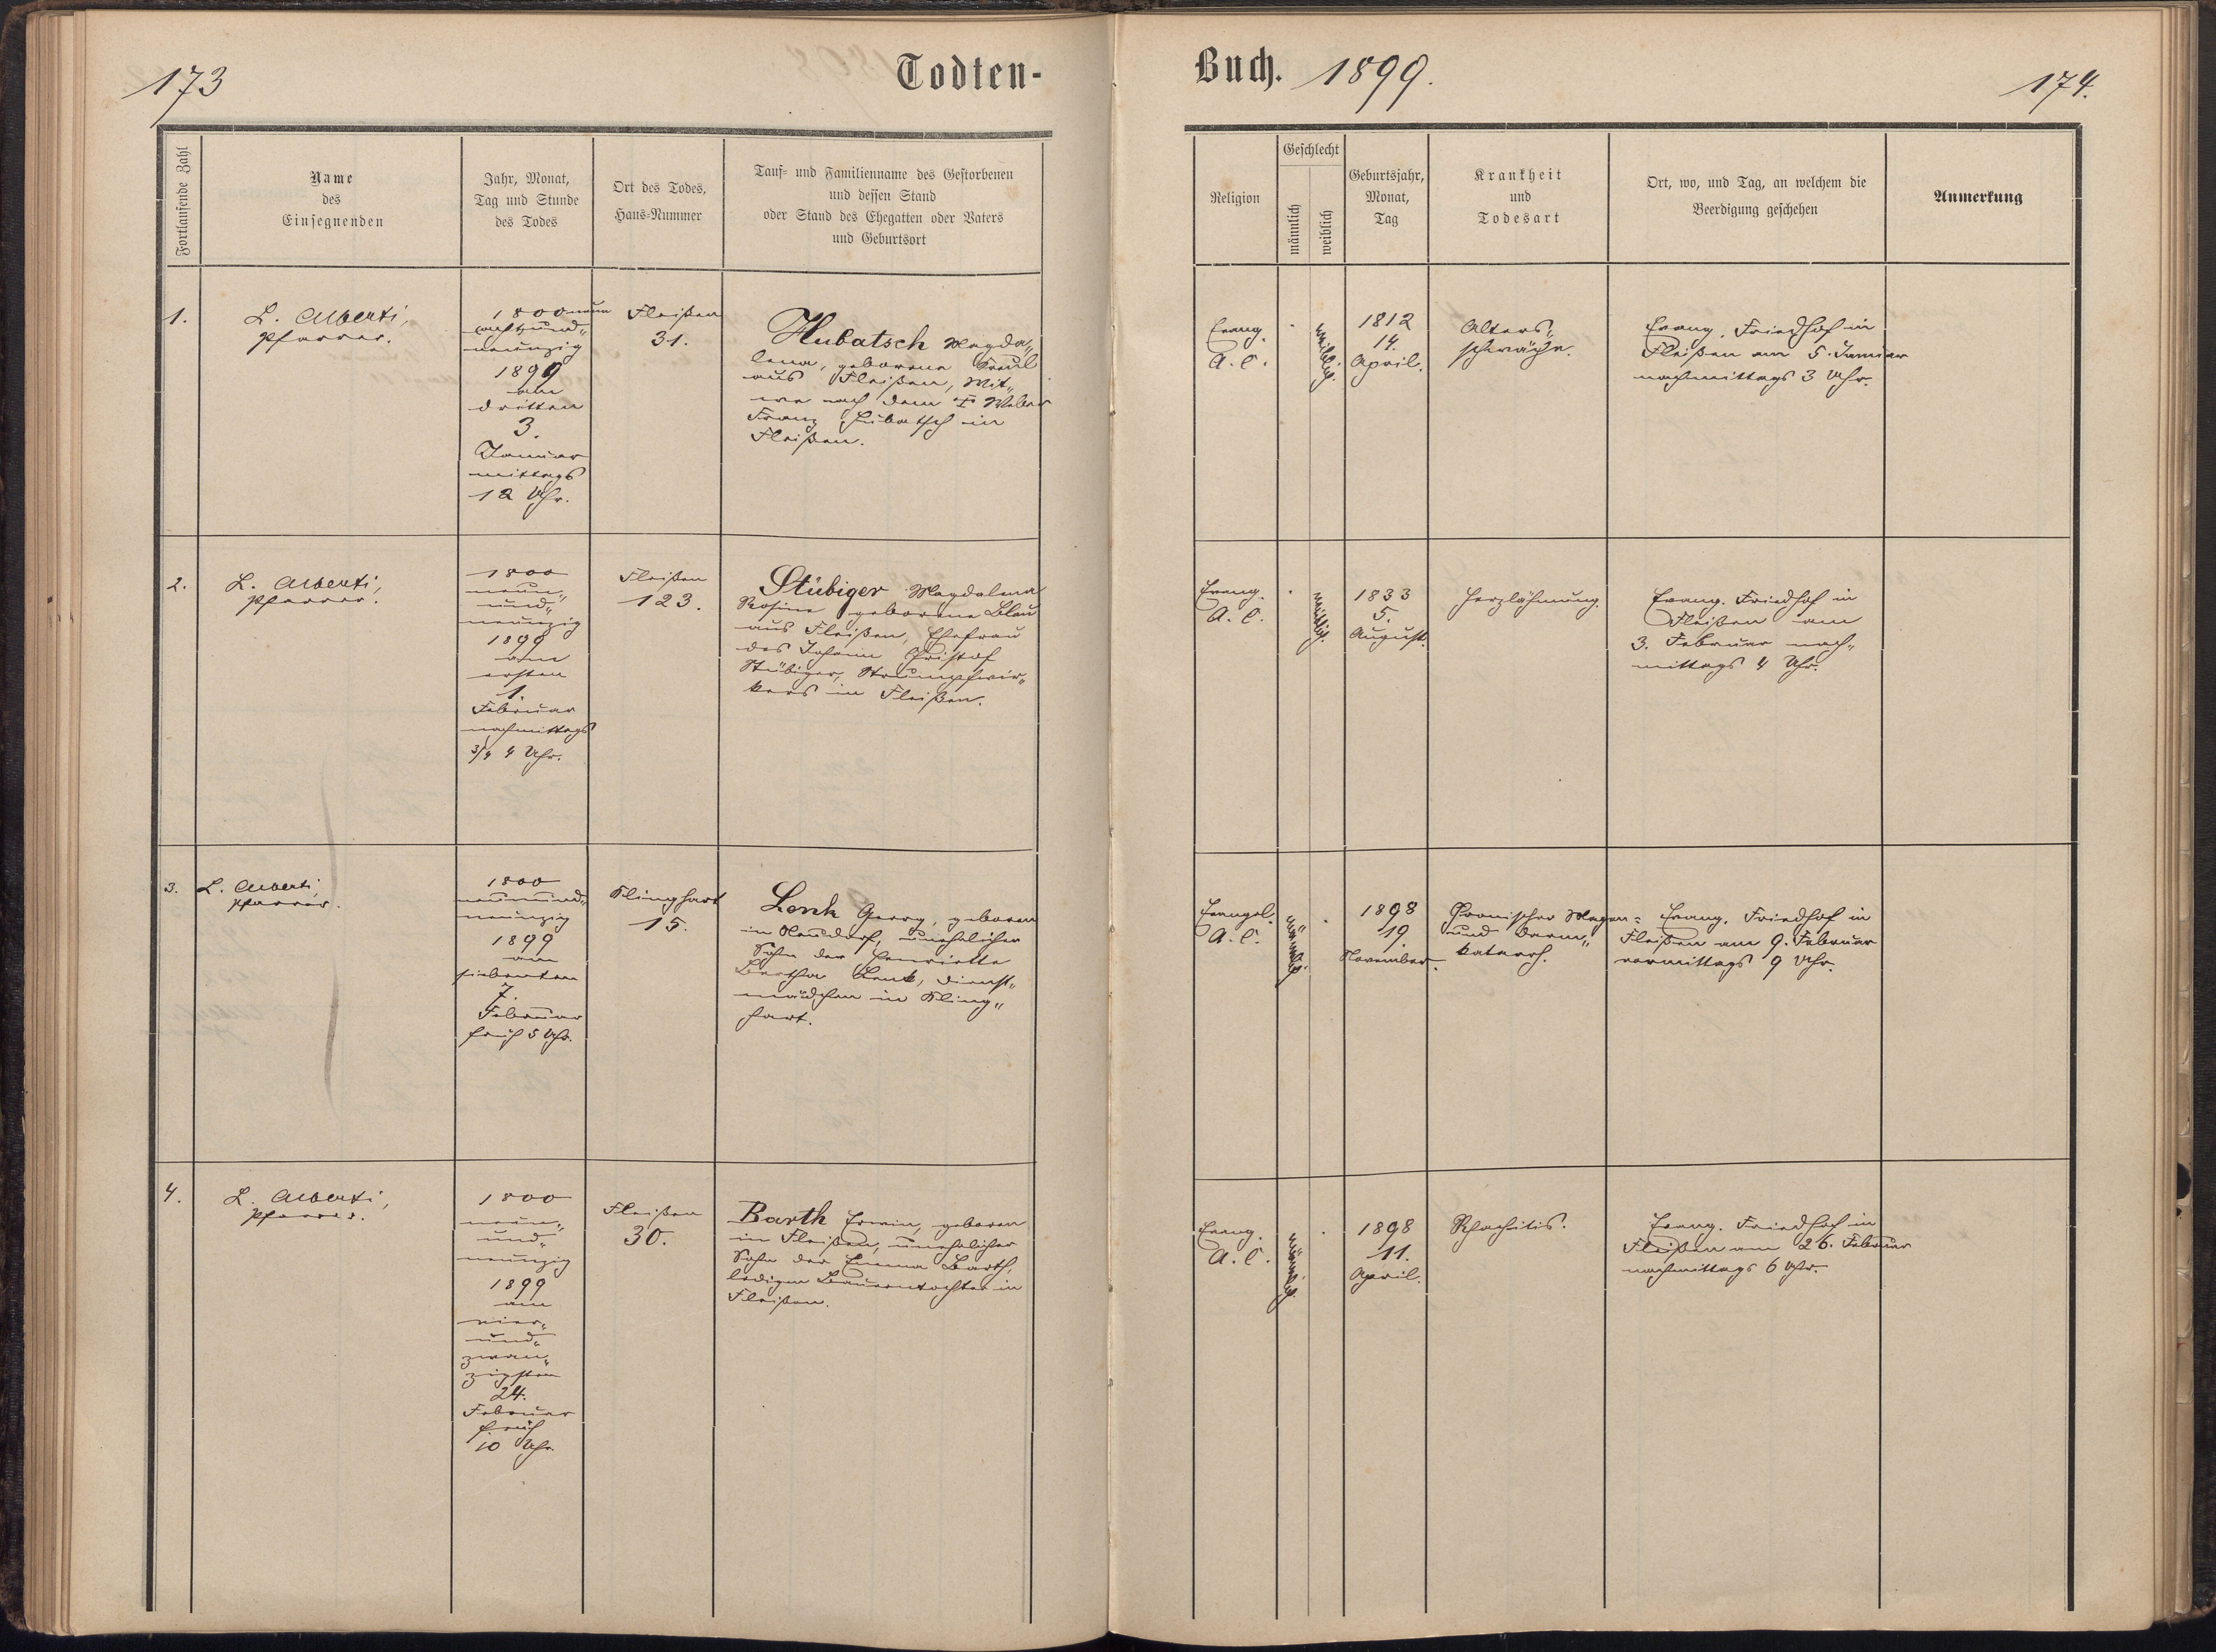 173
Todten-
Fortlaufende Zahl
Name
des
Einsegnenden
Jahr, Monat,
Tag und Stunde
des Todes
Ort des Todes,
Haus-Nummer
Tauf- und Familienname des Gestorbenen
und dessen Stand
oder Stand des Ehegatten oder Vaters
und Geburtsort
1.
L. Alberti,
Pfarrer.
1800 neun
achtzund„
neunzig
1899
am
dritten
3.
Januar
mittags
12 Uhr.
Fleißen
31.
Hubatsch Magda„
lena, geborene
aus Fleißen, Wit„
we nach dem † Weber
Franz Hubatsch in
Fleißen.
2.
L. Alberti,
Pfarrer.
1800
neun„
und„
neunzig
1899
am
ersten
1.
Februar
nachmittags
3/4 4 Uhr.
Fleißen
123.
Stübiger Magdalena
Rosine geborene Blau
aus Fleißen, Ehefrau
des Johann Christof
Stübiger, Strumpfwir„
kers in Fleißen.
3.
L. Alberti,
Pfarrer.
1800
neunund„
neunzig
1899
am
siebenten
7.
Februar
früh 5 Uhr.
Klinghart
15.
Lenk Georg, geboren
in Neudorf, unehelicher
Sohn der Henriette
Bertha Lenk, Dienst„
mädchen in Kling„
hart.
4.
L. Alberti,
Pfarrer.
1800
neun„
und„
neunzig
1899
am
vier„
und„
zwan„
zigsten
24.
Februar
früh
10 Uhr.
Fleißen
30.
Barth Erwin, geboren
in Fleißen, unehelicher
Sohn der Emma Barth,
ledigen Bauerntochter in
Fleißen.
Buch. 1899.
174.
Religion
Geschlecht
männlich
weiblich
Geburtsjahr,
Monat,
Tag
Krankheit
und
Todesart
Ort, wo, und Tag, an welchem die
Beerdigung geschehen
Anmerkung
Evang.
A. C.
weiblich.
1812
14.
April.
Alters„
schwäche.
Evang. Friedhof in
Fleißen am 5. Januar
nachmittags 3 Uhr.
Evang.
A. C.
weiblich.
1833
5.
August.
Herzlähmung.
Evang. Friedhof in
Fleißen am
3. Februar nach„
mittags 4 Uhr.
Evangel.
A. C.
männlich.
1898
19.
November.
Chronischer Magen-
und Darm„
katarrh.
Evang. Friedhof in
Fleißen am 9. Februar
vormittags 9 Uhr.
Evang.
A. C.
männlich.
1898
11.
April.
Rhachitis.
Evang. Friedhof in
Fleißen am 26. Februar
nachmittags 6 Uhr.